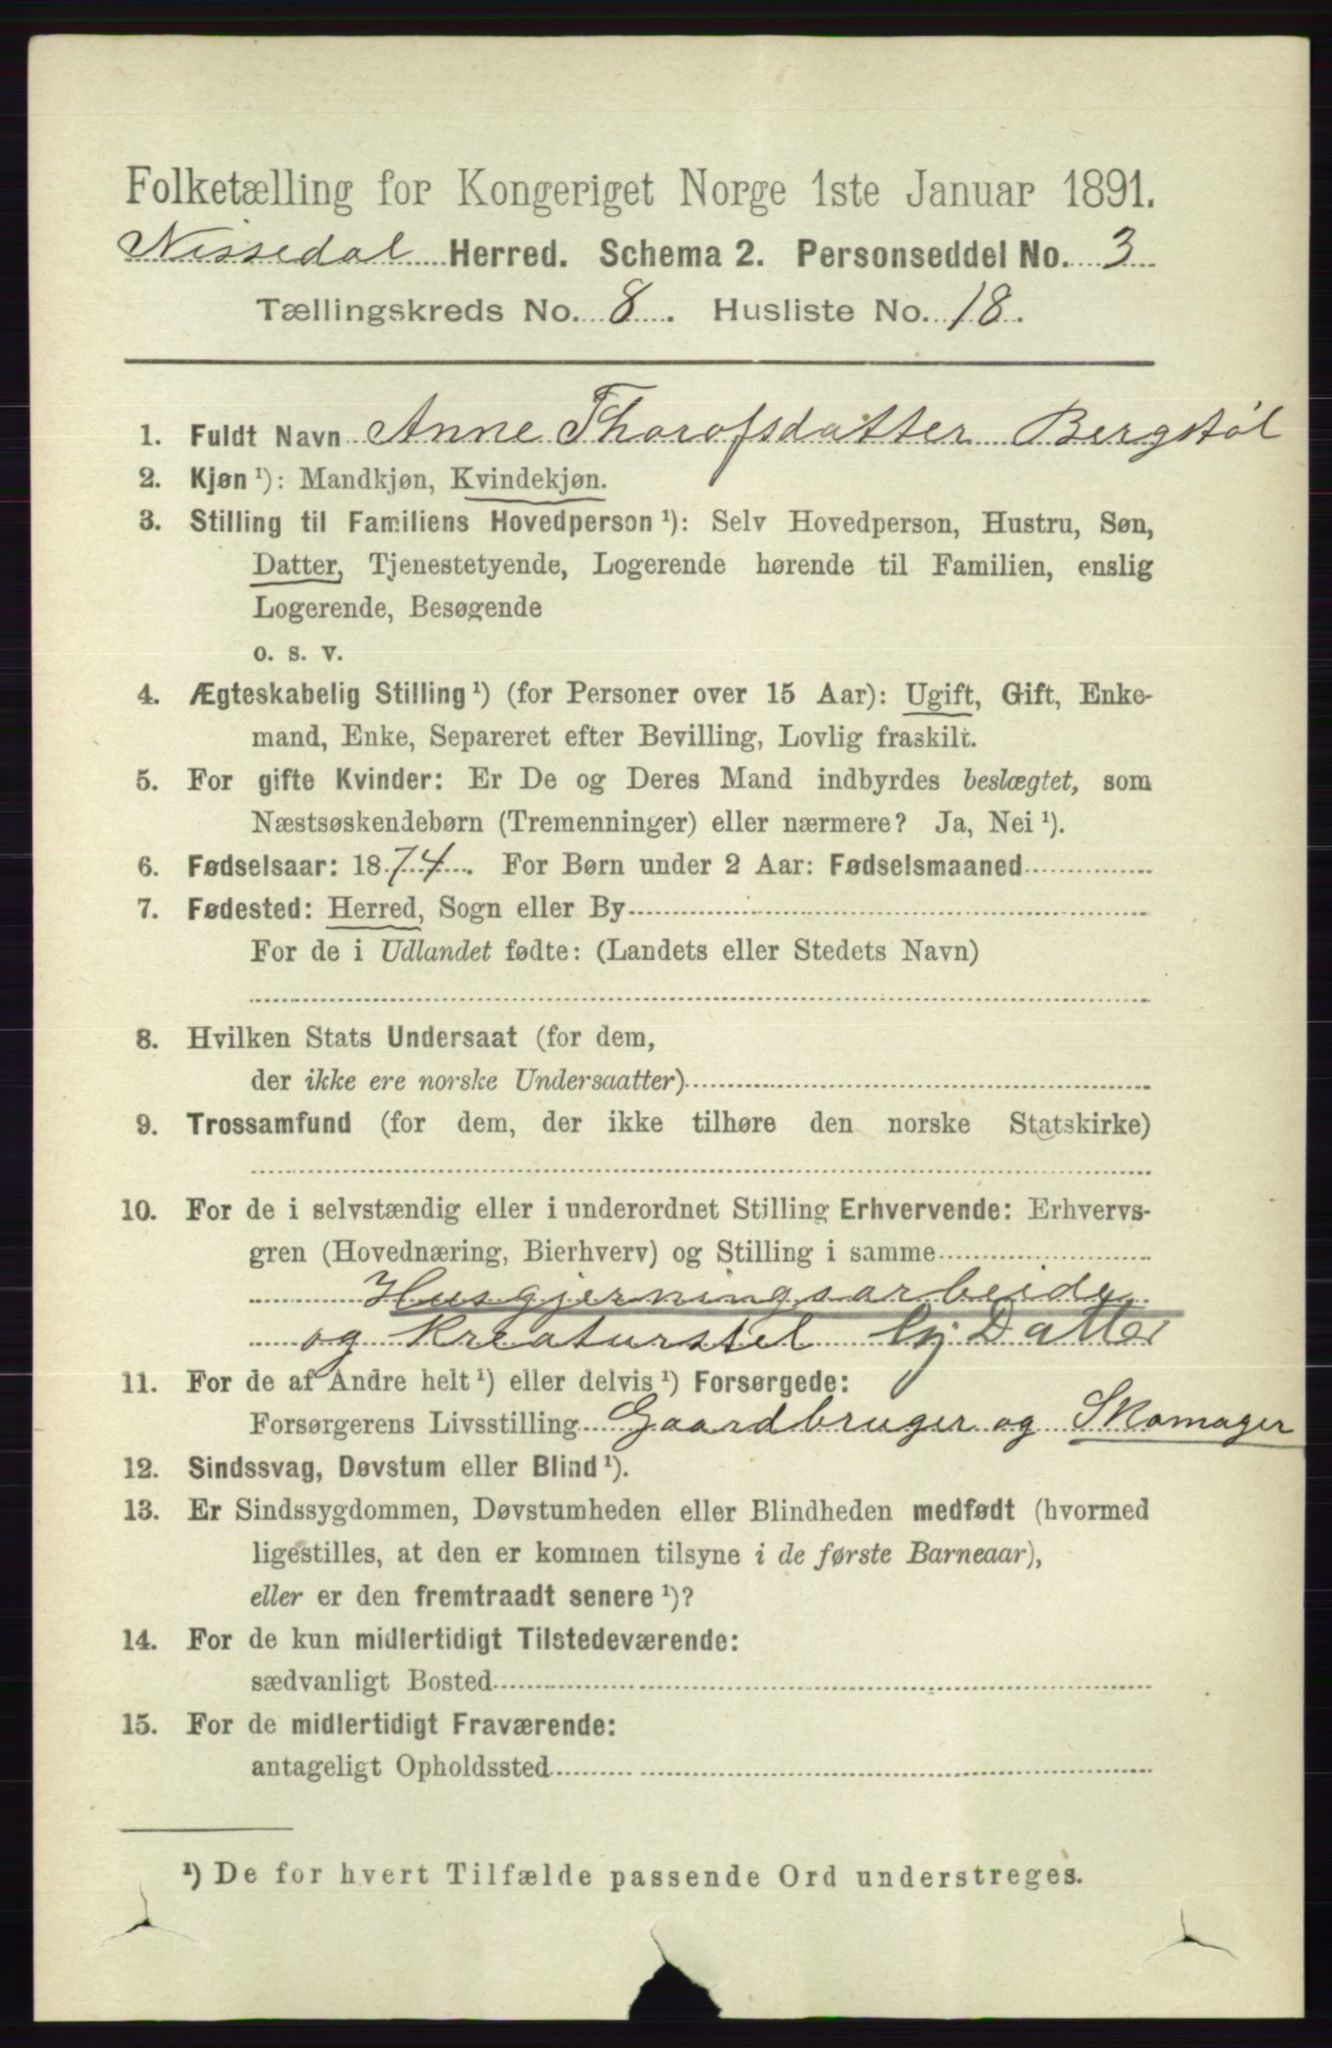 Folketælling for Kongeriget Norge 1ste Januar 1891.
Nissedal Herred. Schema 2. Personseddel No. 3
Tællingskreds No. 8. Husliste No. 18.
1. Fuldt Navn Anne Thorofsdatter Bergstøl
2. Kjøn ¹): Mandkjøn, Kvindekjøn.
3. Stilling til Familiens Hovedperson ¹): Selv Hovedperson, Hustru, Søn,
Datter, Tjenestetyende, Logerende hørende til Familien, enslig
Logerende, Besøgende
o. s. v.
4. Ægteskabelig Stilling ¹) (for Personer over 15 Aar): Ugift, Gift, Enke-
mand, Enke, Separeret efter Bevilling, Lovlig fraskilt.
5. For gifte Kvinder: Er De og Deres Mand indbyrdes beslægtet, som
Næstsøskendebørn (Tremenninger) eller nærmere? Ja, Nei ¹).
6. Fødselsaar: 1874. For Børn under 2 Aar: Fødselsmaaned
7. Fødested: Herred, Sogn eller By
For de i Udlandet fødte: (Landets eller Stedets Navn)
8. Hvilken Stats Undersaat (for dem,
der ikke ere norske Undersaatter)
9. Trossamfund (for dem, der ikke tilhøre den norske Statskirke)
10. For de i selvstændig eller i underordnet Stilling Erhvervende: Erhvervs-
gren (Hovednæring, Bierhverv) og Stilling i samme
Husgjerningsarbeide
og Kreaturstel Datter
11. For de af Andre helt ¹) eller delvis ¹) Forsørgede:
Forsørgerens Livsstilling Gaardbruger og Skomager
12. Sindssvag, Døvstum eller Blind ¹).
13. Er Sindssygdommen, Døvstumheden eller Blindheden medfødt (hvormed
ligestilles, at den er kommen tilsyne i de første Barneaar),
eller er den fremtraadt senere ¹)?
14. For de kun midlertidigt Tilstedeværende:
sædvanligt Bosted
15. For de midlertidigt Fraværende:
antageligt Opholdssted
¹) De for hvert Tilfælde passende Ord understreges.